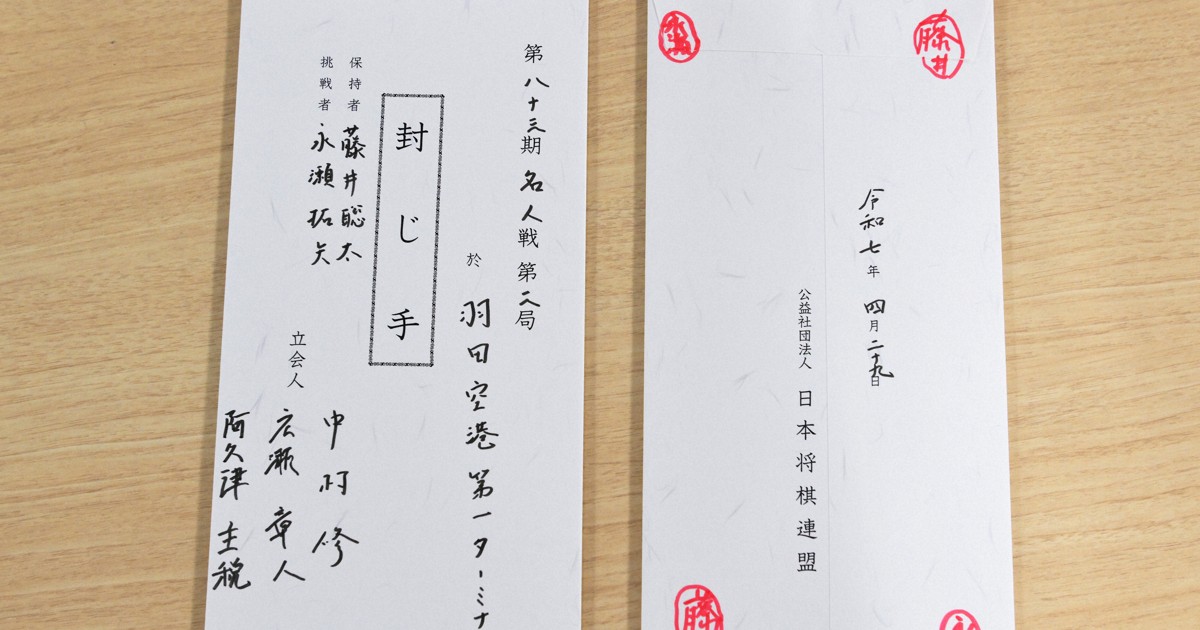 第八十三期 名人戦 第二局
於 羽田空港 第一ターミナ
封じ手
保持者 藤井聡太
挑戦者 永瀬拓矢
立会人
中村 修
広瀬 章人
阿久津 主税
藤井
令和七年 四月二十九日
公益社団法人 日本将棋連盟
藤
永